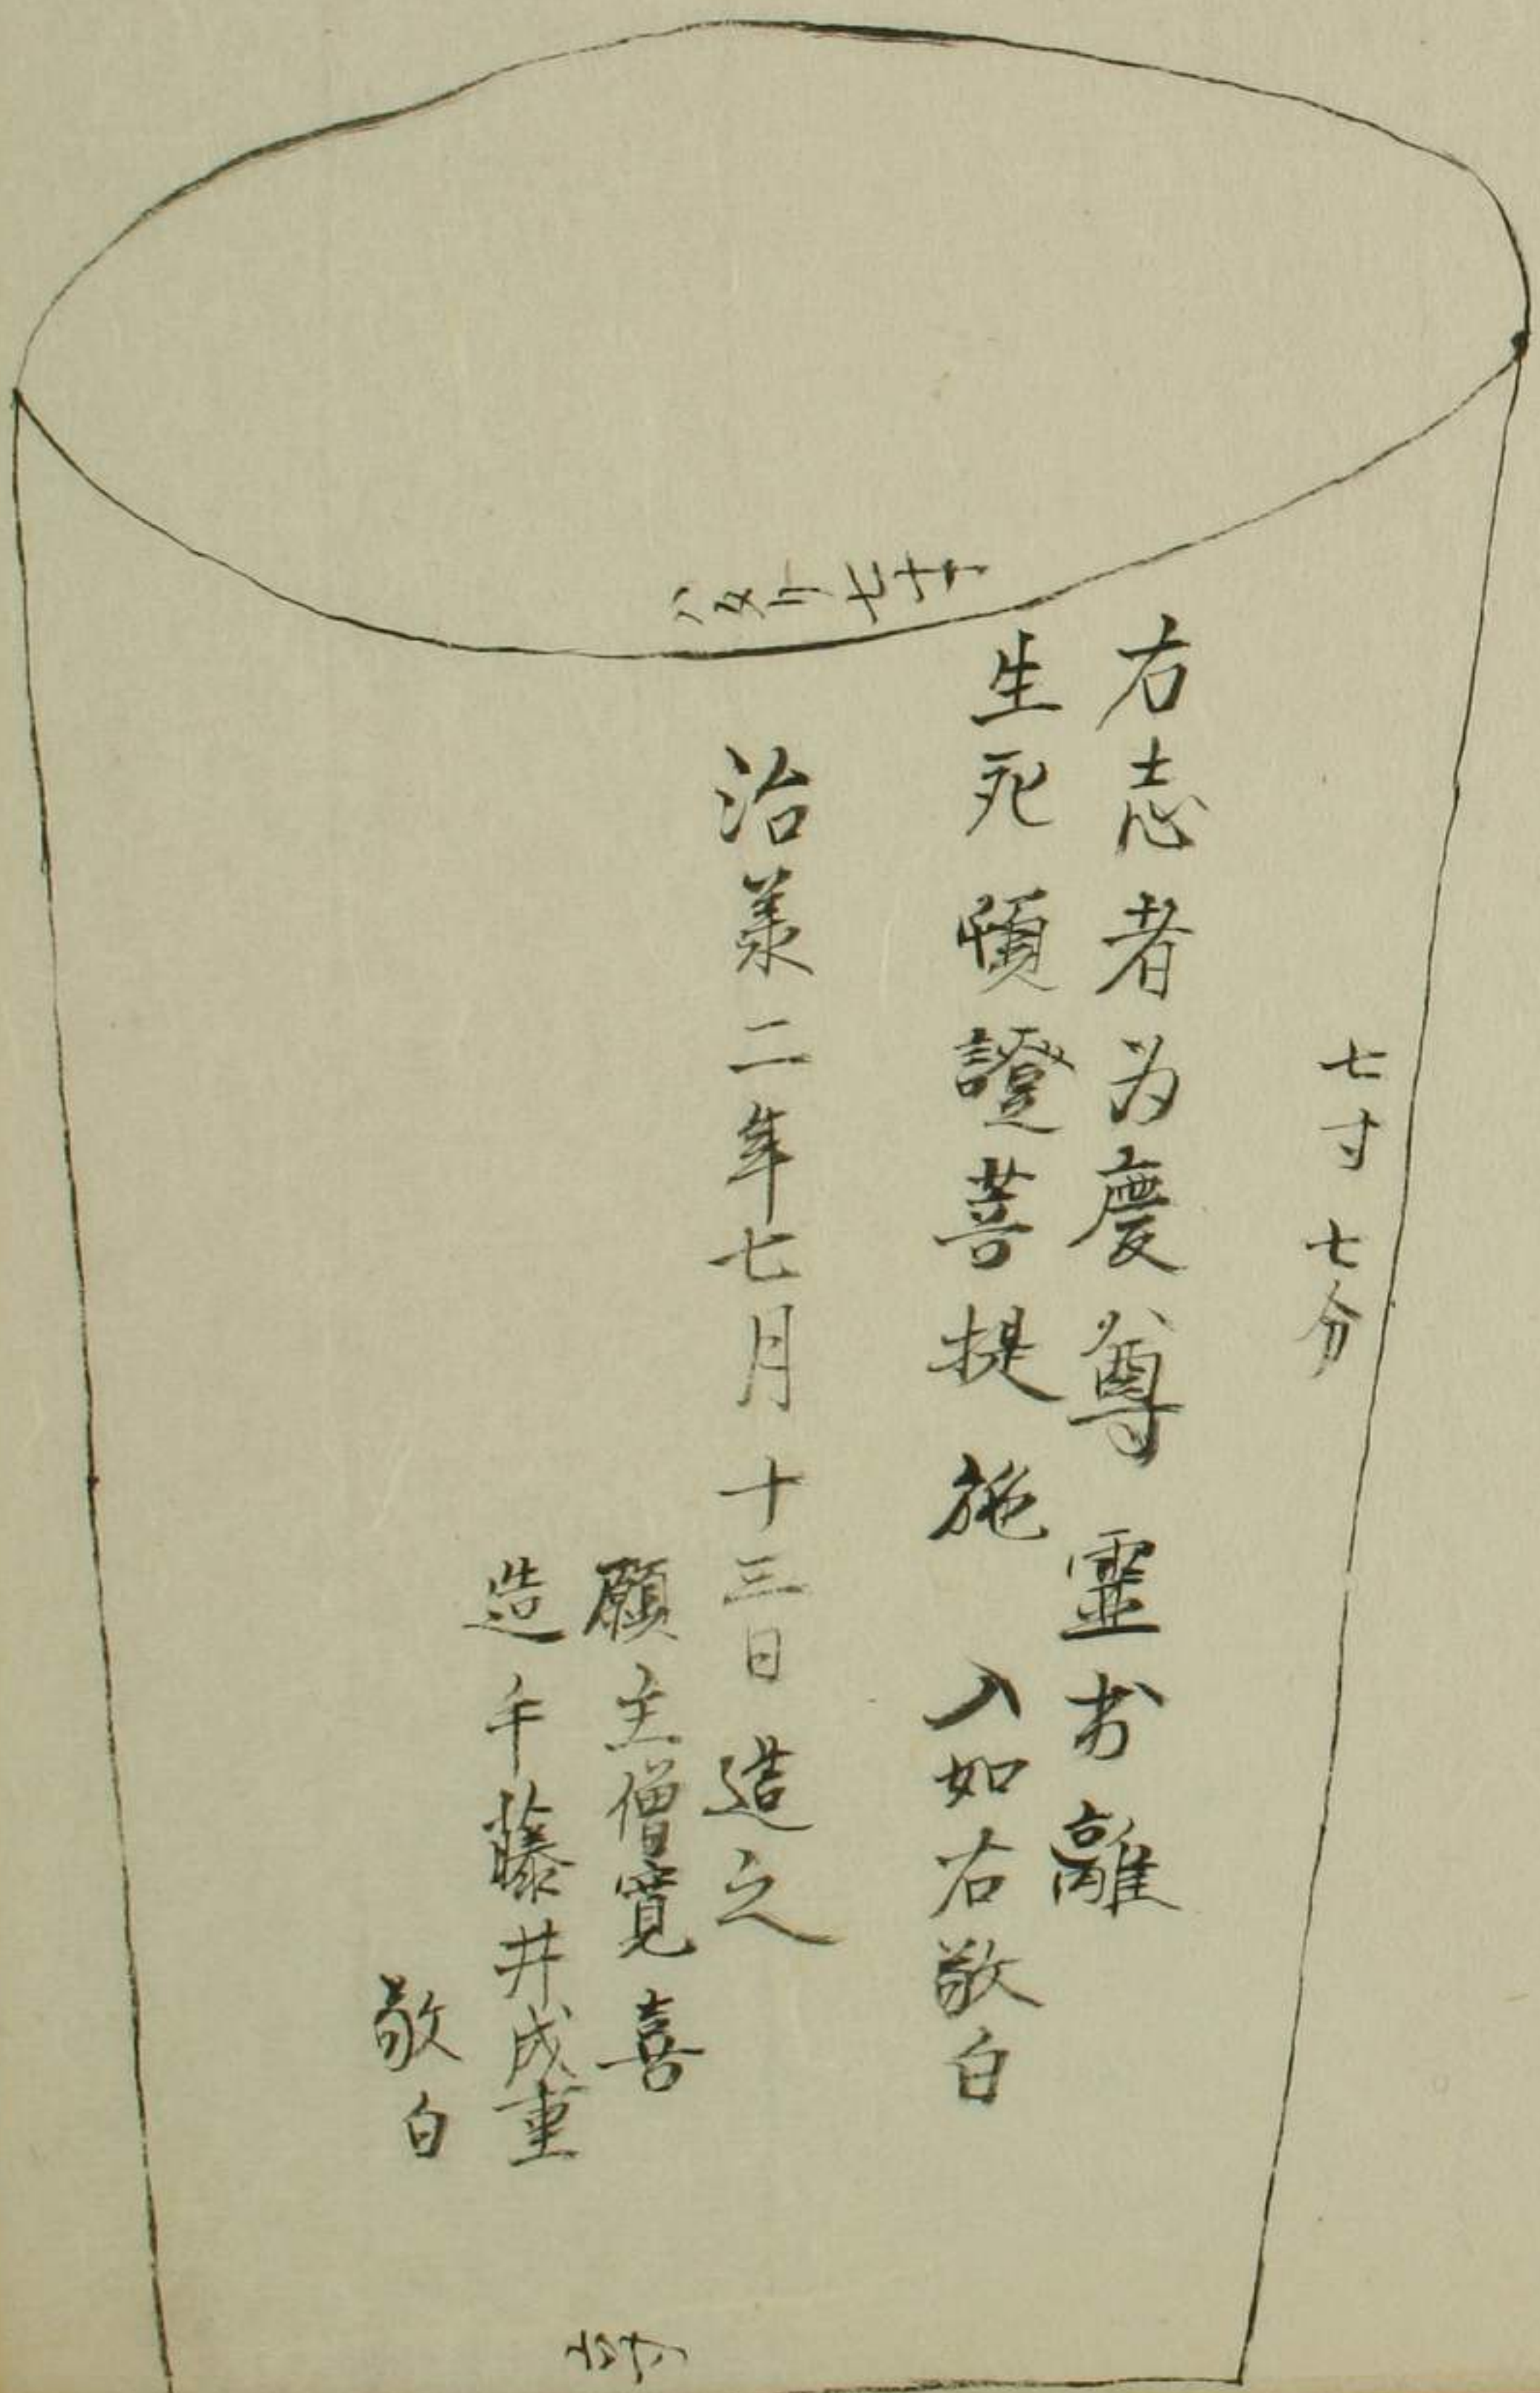 七寸七分
右志者为慶尊靈出離
生死頓證菩提施入如右敬白
治承二年七月十三日造之
願主僧寛喜
造手藤井成重
敬白